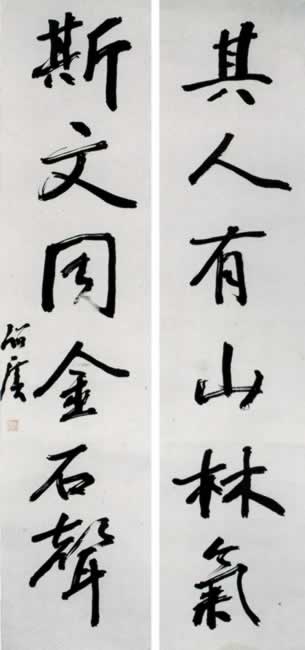 其人有山林氣
斯文同金石聲
紹虞